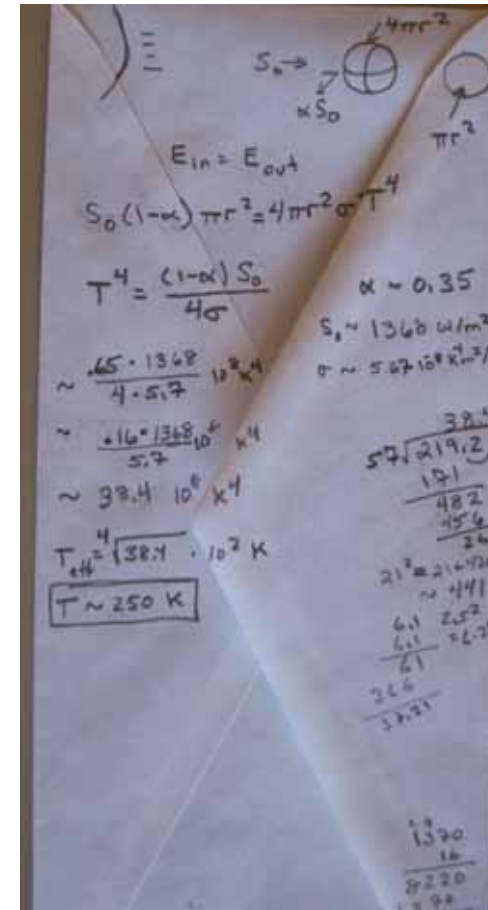 4πr²
S₀→
αS₀
πr²
E in = E out
S₀(1-α)πr² = 4πr²σT⁴
T⁴ = (1-α) S₀ / 4σ
α ~ 0.35
S₀ ~ 1368 W/m²
~ .65 · 1368 / 4 · 5.7 10⁸ K⁴
σ ~ 5.67 10⁸
~ .16 · 1368 / 5.7 10⁸ K⁴
~ 38.4 10⁸ K⁴
T eff = ⁴√38.4 · 10² K
T ~ 250 K
38.4
57√219.2
171
482
456
26
21² = 21+420
~ 441
6.1 2.5²
6.1
61
366
37.21
1370
16
8220